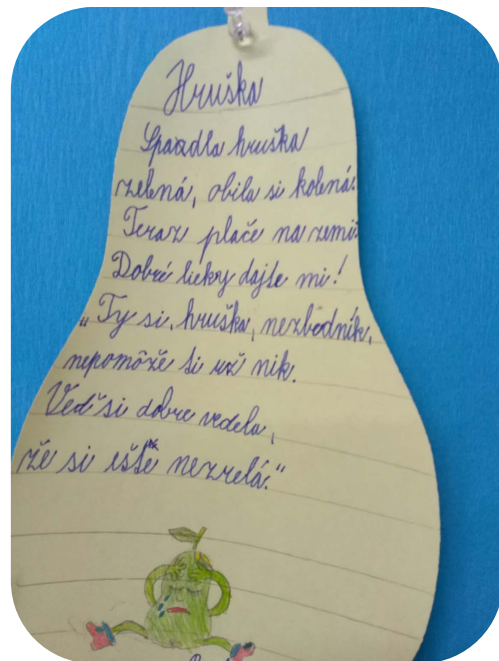 Hruška
Spadla hruška
zelená, obila si kolená.
Teraz plače na zemi:
Dobré lieky dajte mi!
„Ty si, hruška, nezbedník,
nepomôže ti už nik.
Veď si dobre vedela,
že si ešte nezrelá."